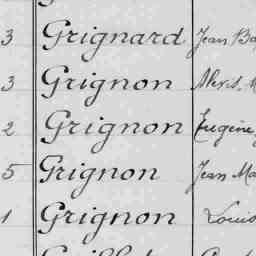 3 Grignard Jean Ba
3 Grignon Alexis M
2 Grignon Eugène
5 Grignon Jean Ma
1 Grignon Louis